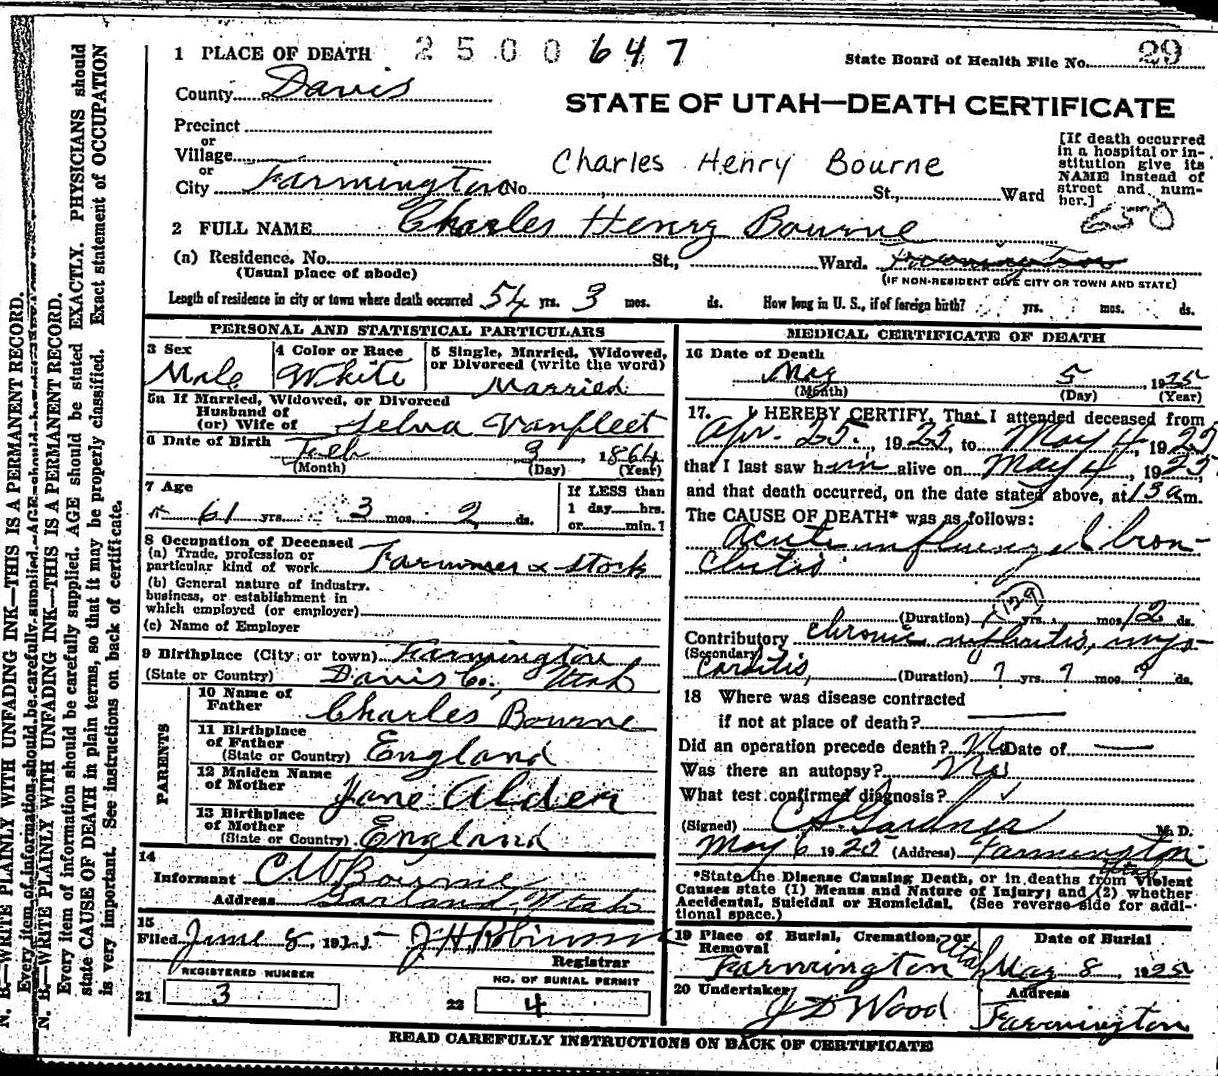 1 PLACE OF DEATH 2500647
State Board of Health File No. 29
County Davis
STATE OF UTAH—DEATH CERTIFICATE
Precinct
or
Village
or
City Farmington No. St., Ward
Charles Henry Bourne
[If death occurred
in a hospital or in-
stitution give its
NAME instead of
street and num-
ber.]
650
2 FULL NAME Charles Henry Bourne
(a) Residence. No. St., Ward. Farmington
(Usual place of abode)
(IF NON-RESIDENT GIVE CITY OR TOWN AND STATE)
Length of residence in city or town where death occurred 54 yrs. 3 mos. ds. How long in U. S., if of foreign birth? yrs. mos. ds.
PERSONAL AND STATISTICAL PARTICULARS
3 Sex
Male
4 Color or Race
White
5 Single, Married, Widowed,
or Divorced (write the word)
Married
5a If Married, Widowed, or Divorced
Husband of
(or) Wife of Selva Vanfleet
6 Date of Birth Feb 3, 1864
(Month) (Day) (Year)
7 Age
61 yrs. 3 mos. 2 ds.
If LESS than
1 day hrs.
or min.?
8 Occupation of Deceased
(a) Trade, profession or
particular kind of work Farmer & stock
(b) General nature of industry,
business, or establishment in
which employed (or employer)
(c) Name of Employer
9 Birthplace (City or town) Farmington
(State or Country) Davis Co., Utah
PARENTS
10 Name of
Father Charles Bourne
11 Birthplace
of Father
(State or Country) England
12 Maiden Name
of Mother Jane Alder
13 Birthplace
of Mother
(State or Country) England
14
Informant C W Bourne
Address Garland, Utah
15
Filed June 8, 1925 J H Robinson
Registrar
REGISTERED NUMBER
21 3
NO. OF BURIAL PERMIT
22 4
MEDICAL CERTIFICATE OF DEATH
16 Date of Death
May 5, 1925
(Month) (Day) (Year)
17. I HEREBY CERTIFY, That I attended deceased from
Apr. 25, 1925, to May 4, 1925
that I last saw him alive on May 4, 1925
and that death occurred, on the date stated above, at 1 30 a m.
The CAUSE OF DEATH* was as follows:
Acute influenzal bron-
chitis
129
(Duration) yrs. mos. 12 ds.
Contributory chronic nephritis, myo-
(Secondary)
carditis, (Duration) ? yrs. ? mos. ? ds.
18 Where was disease contracted
if not at place of death?
Did an operation precede death? No Date of
Was there an autopsy? No
What test confirmed diagnosis?
(Signed) C A Gardner M. D.
May 6 1925 (Address) Farmington
Utah
*State the Disease Causing Death, or in deaths from Violent
Causes state (1) Means and Nature of Injury; and (2) whether
Accidental, Suicidal or Homicidal. (See reverse side for addi-
tional space.)
19 Place of Burial, Cremation, or
Removal
Farmington Utah
Date of Burial
May 8 1925
20 Undertaker
J D Wood
Address
Farmington
READ CAREFULLY INSTRUCTIONS ON BACK OF CERTIFICATE
N. B.—WRITE PLAINLY WITH UNFADING INK—THIS IS A PERMANENT RECORD.
Every item of information should be carefully supplied. AGE should be
N. B.—WRITE PLAINLY WITH UNFADING INK—THIS IS A PERMANENT RECORD.
Every item of information should be carefully supplied. AGE should be stated EXACTLY. PHYSICIANS should
state CAUSE OF DEATH in plain terms, so that it may be properly classified. Exact statement of OCCUPATION
is very important. See instructions on back of certificate.